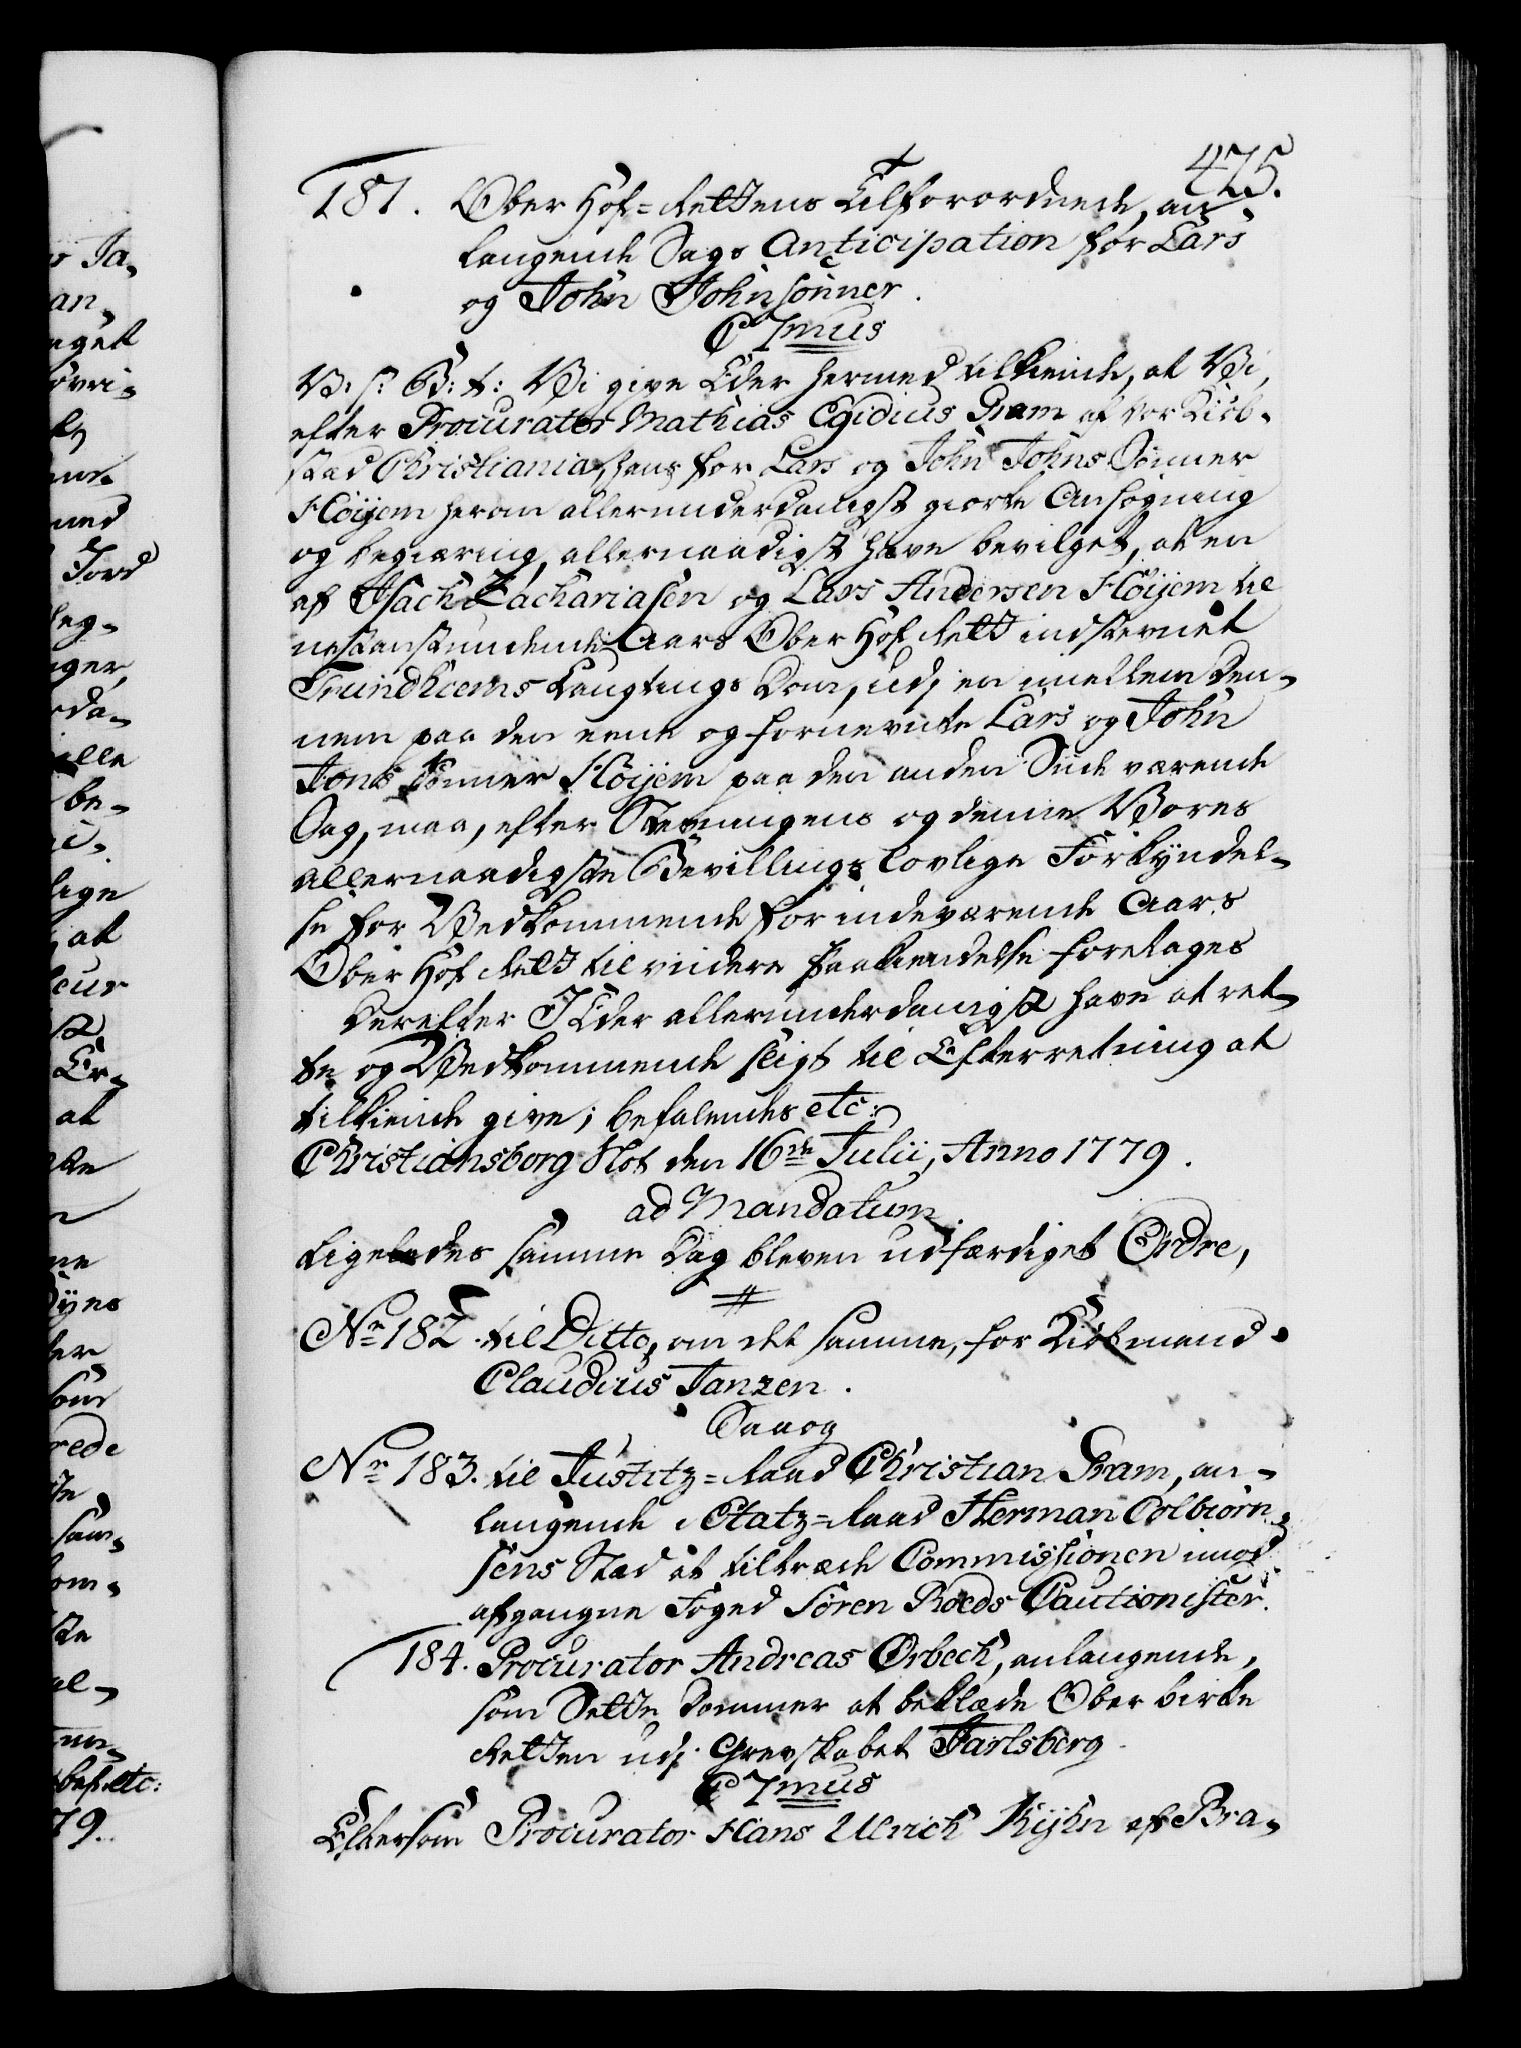 475.
181. Ober Hof-Rettens Tilforordnede, an-
langende Sags Anticipation for Lars
og John Johnsønner.
C 7mus
V: s: G: t: Vi give Eder hermed tilkiende, at Vi,
efter Procurator Mathias Egidius Pram af vor Kiøb-
stad Christiania, hans for Lars og John Johns Sønner
Høijem herom allerunderdanigst giorte Ansøgning
og begiæring, allernaadigst have bevilget, at en
af Isach Zachariasen og Lars Andersen Høijem til
nestanstundende Aars Ober Hof Rett indstevnet
Trundhiems Laugtings Dom, udj en imellem Den-
nem paa den eene og fornevnte Lars og John
Jons Sønner Høijem paa den anden Siide værende
Sag, maa, efter Stevningens og denne Vores
allernaadigste Bevillings lovlige Forkyndel-
se for Vedkommende for indeværende Aars
Ober Hof Rett til videre Paakiendelse foretages
Derefter I Eder allerunderdanigst have at ret-
te og Vedkommende sligt til Efterretning at
tilkiende give; befalendes etc:
Christiansborg Slot den 16de Julii, Anno 1779.
ad Mandatum.
Ligeledes samme Dag bleven udfærdiget Ordre,
#
Nr 182. til Ditto, om det samme, for Kiøbmand
Claudius Janzen.
Saaog
Nr 183. til Justitz-Raad Christian Pram, an-
langende i Etatz-Raad Herman Colbiørn-
sens Stad at tiltræde Commissionen imod
afgangne Foged Søren Roeds Cautionister.
184. Procurator Andreas Ørbech, anlangende,
som Sette Dommer at beklæde Ober birke
Retten udj Grevskabet Jarlsberg.
C 7mus
Eftersom Procurator Hans Ulrich Kyhn af Bra-